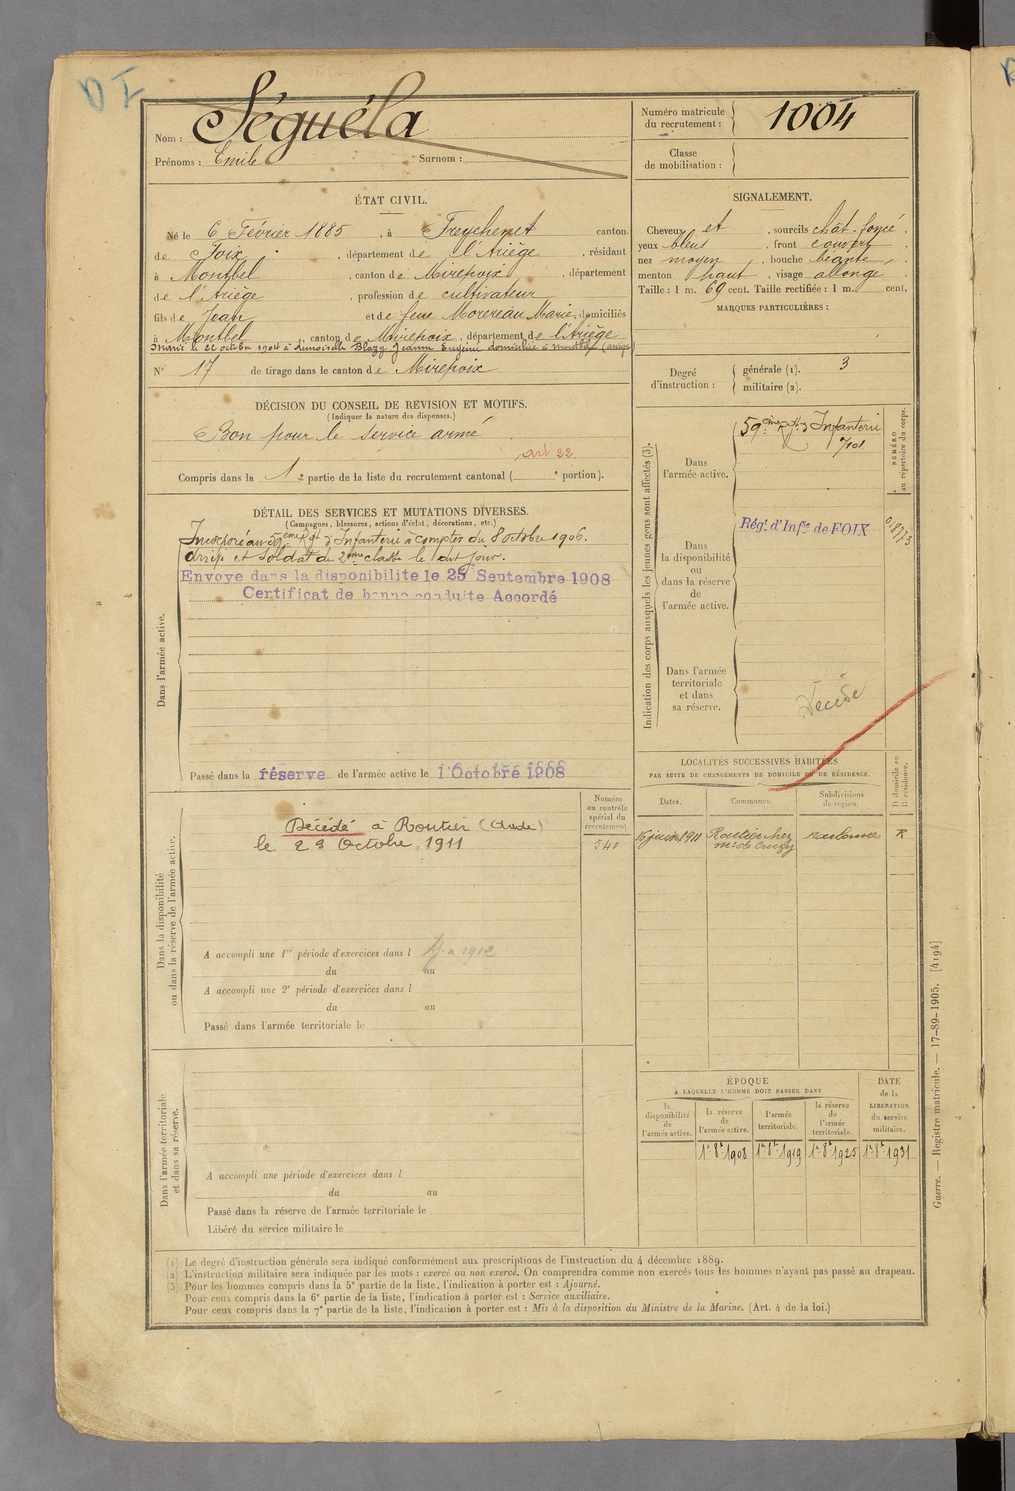 D I
Nom : Séguéla
Prénoms : Emile Surnom :
Numéro matricule du recrutement : 1004
Classe de mobilisation :
ÉTAT CIVIL.
Né le 6 Février 1885, à Freychenet canton
de Foix, département de l'Ariège, résidant
à Montbel, canton de Mirepoix, département
de l'Ariège, profession de cultivateur
fils de Jean et de feue Morereau Marie, domiciliés
à Montbel, canton de Mirepoix, département de l'Ariège
Marié le 22 octobre 1904 à demoiselle Blazy Jeanne Eugénie domiciliée à Montbel (Ariège)
N° 17 de tirage dans le canton de Mirepoix
SIGNALEMENT.
Cheveux et, sourcils chât. foncé.
yeux bleus, front couvert
nez moyen, bouche béante,
menton haut, visage allongé
Taille : 1 m. 69 cent. Taille rectifiée : 1 m. cent.
MARQUES PARTICULIÈRES :
Degré d'instruction : générale (1). 3
militaire (2).
DÉCISION DU CONSEIL DE REVISION ET MOTIFS.
(Indiquer la nature des dispenses.)
Bon pour le service armé
art 22
Compris dans la 1re partie de la liste du recrutement cantonal ( e portion).
DÉTAIL DES SERVICES ET MUTATIONS DIVERSES.
(Campagnes, blessures, actions d'éclat, décorations, etc.)
Incorporé au 59ème Rgt d'Infanterie à compter du 8 octobre 1906.
Arrivé et Soldat de 2ème classe le dit jour.
Envoyé dans la disponibilité le 25 Septembre 1908
Certificat de bonne conduite Accordé
Dans l'armée active.
Passé dans la réserve de l'armée active le 1 Octobre 1908
Indication des corps auxquels les jeunes gens sont affectés (3).
NUMÉRO au répertoire du corps.
Dans l'armée active.
59ème Rgt d'Infanterie
Dans la disponibilité ou dans la réserve de l'armée active.
Régt d'Infie de FOIX
Dans l'armée territoriale et dans sa réserve.
Décédé
LOCALITÉS SUCCESSIVES HABITÉES
PAR SUITE DE CHANGEMENTS DE DOMICILE OU DE RÉSIDENCE.
Dates. Communes. Subdivisions de région. D domicile ou R résidence.
15 juin 1911 Routier chez Narbonne R
Mr de Cruzy
Dans la disponibilité ou dans la réserve de l'armée active.
Numéro au contrôle spécial du recrutement
540
Décédé à Routier (Aude)
le 23 Octobre 1911
A accompli une 1re période d'exercices dans l
du au
A accompli une 2e période d'exercices dans l
du au
Passé dans l'armée territoriale le
Dans l'armée territoriale et dans sa réserve.
A accompli une période d'exercices dans l
du au
Passé dans la réserve de l'armée territoriale le
Libéré du service militaire le
ÉPOQUE
À LAQUELLE L'HOMME DOIT PASSER DANS
la disponibilité de l'armée active.
la réserve de l'armée active.
l'armée territoriale.
la réserve de l'armée territoriale.
DATE de la LIBÉRATION du service militaire.
1r 8e 1908 1r 8e 1919 1r 8e 1925 1r 8e 1931
Guerre. — Registre matricule. — 17-89-1905. [4194]
(1) Le degré d'instruction générale sera indiqué conformément aux prescriptions de l'instruction du 4 décembre 1889.
(2) L'instruction militaire sera indiquée par les mots : exercé ou non exercé. On comprendra comme non exercés tous les hommes n'ayant pas passé au drapeau.
(3) Pour les hommes compris dans la 5e partie de la liste, l'indication à porter est : Ajourné.
Pour ceux compris dans la 6e partie de la liste, l'indication à porter est : Service auxiliaire.
Pour ceux compris dans la 7e partie de la liste, l'indication à porter est : Mis à la disposition du Ministre de la Marine. (Art. 4 de la loi.)